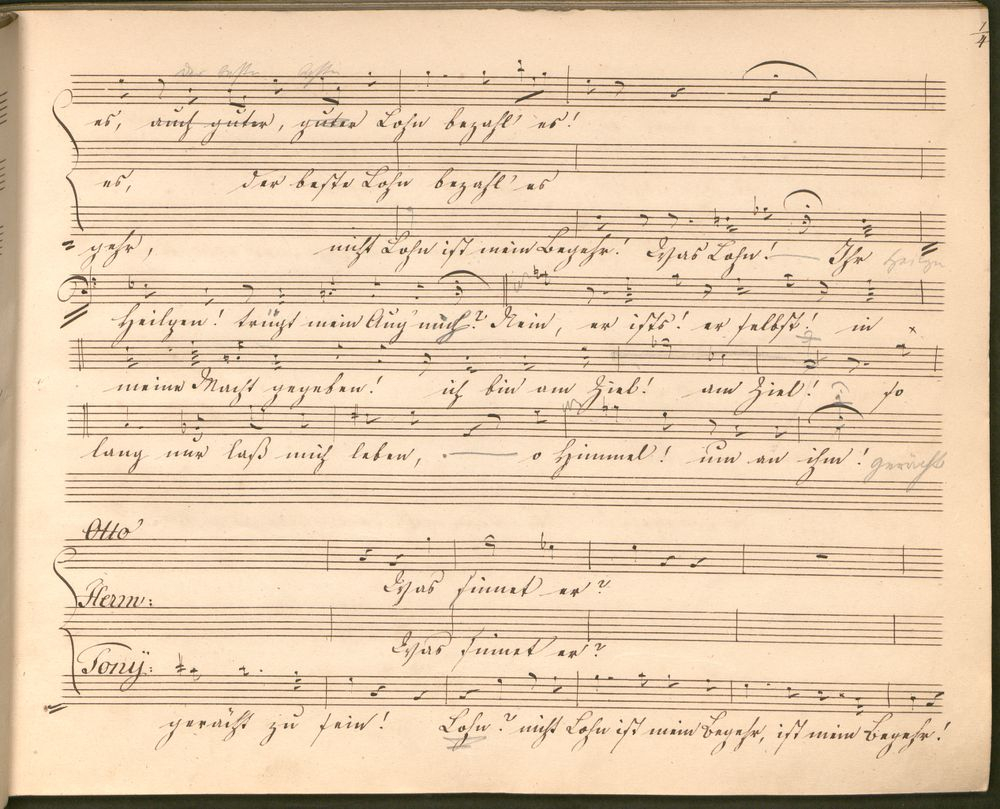 1/4
der beste besten
es, auch guter, guter Lohn bezahl' es!
es, der beste Lohn bezahl' es
gehr, nicht Lohn ist mein Begehr! Was Lohn! — Ihr Heilgen
Heilgen! trügt mein Aug' mich? Nein, er ists! er selbst! in
meine Macht gegeben! ich bin am Ziel! am Ziel! so
lang nur laß mich leben, — o Himmel! um an ihm! gerächt
Otto
Was sinnet er?
Herm:
Was sinnet er?
Tonÿ:
gerächt zu sein! Lohn? nicht Lohn ist mein Begehr, ist mein Begehr!